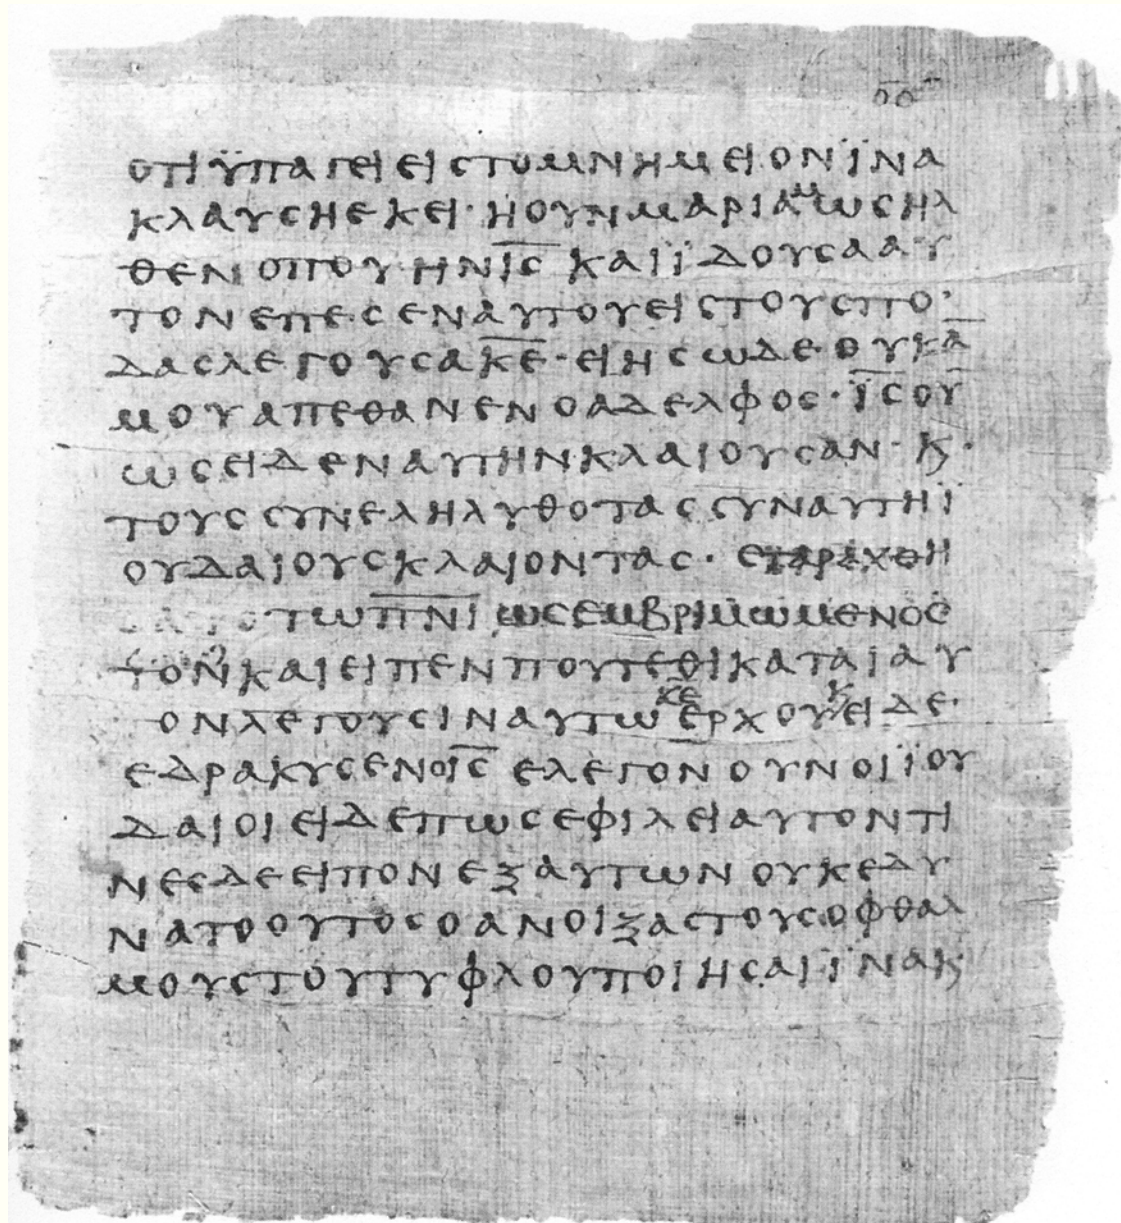 οα
οτι ϋπαγει εις το μνημειον ϊνα
κλαυση εκει· η ουν μαριαμ ως ηλ
θεν οπου ην ι̅ς̅ και ϊδουσα αυ
τον επεσεν αυτου εις τους πο
δας λεγουσα κ̅ε̅· ει ης ωδε ουκ α̅
μου απεθανεν ο αδελφος· ι̅ς̅ ου̅
ως ειδεν αυτην κλαιουσαν· κ̣
τους συνεληλυθοτας συν αυτη ϊ
ουδαιους κλαιοντας· εταραχθη
τω π̅ν̅ι̅ ως εμβριμωμενος
και ειπεν που τεθικατai αυ
ον λεγουσιν αυτω κ̅ε̅ ερχου κ̣ ειδε·
εδρακυσεν ο ι̅ς̅ ελεγον ουν οι ϊου
δαιοι ειδε πως εφιλει αυτον τι
νες δε ειπον εξ αυτων ουκ εδυ
νατο ουτος ο ανοιξας τους οφθαλ
μους του τυφλου ποιησαι ϊνα κ̣